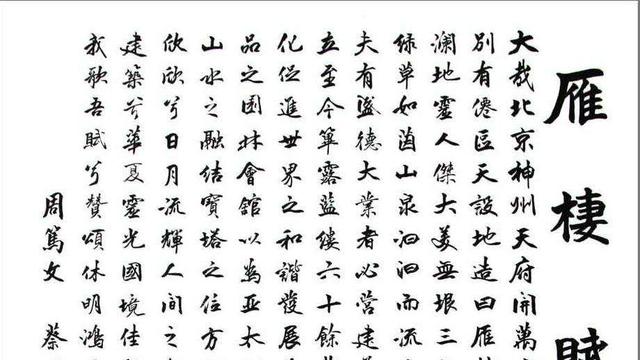 雁棲賦
大哉北京神州天府開萬
別有僊區天設地造曰雁
瀾地靈人傑大美無垠三
綠草如茵山泉汩汩而流
夫有盛德大業者必營建
立至今篳露藍縷六十餘
化促進世界之和諧發展
品之園林會館以為亞太
山水之融結寶塔之位方
欣欣兮日月流輝人間之
建築兮華夏靈光國境佳
我歌吾賦兮贊頌休明鴻
周篤文 蔡